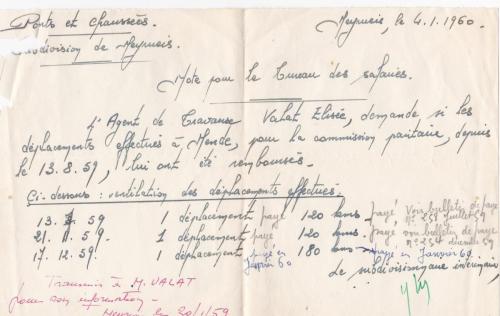 Ponts et Chaussées.
Subdivision de Meyrueis.
Meyrueis, le 4.1.1960.
Note pour le Bureau des salaires.
L'Agent de Travaux Valat Elisée, demande si les
déplacements effectués à Mende, pour la commission paritaire, depuis
le 13.8.59, lui ont été remboursés.
Ci-dessous : ventilation des déplacements effectués.
13. 59 1 déplacement payé 120 kms payé, voir bulletin de paye n° 258 Juillet 59
21. 11. 59 1 déplacement payé 120 kms. payé voir bulletin de paye n° 254 décembre 59
17. 12. 59. 1 déplacement payé en Janvier 60 180 kms payé en Janvier 60
Le subdivisionnaire intérimaire,
Transmis à M. VALAT
pour son information -
le 20/1/59